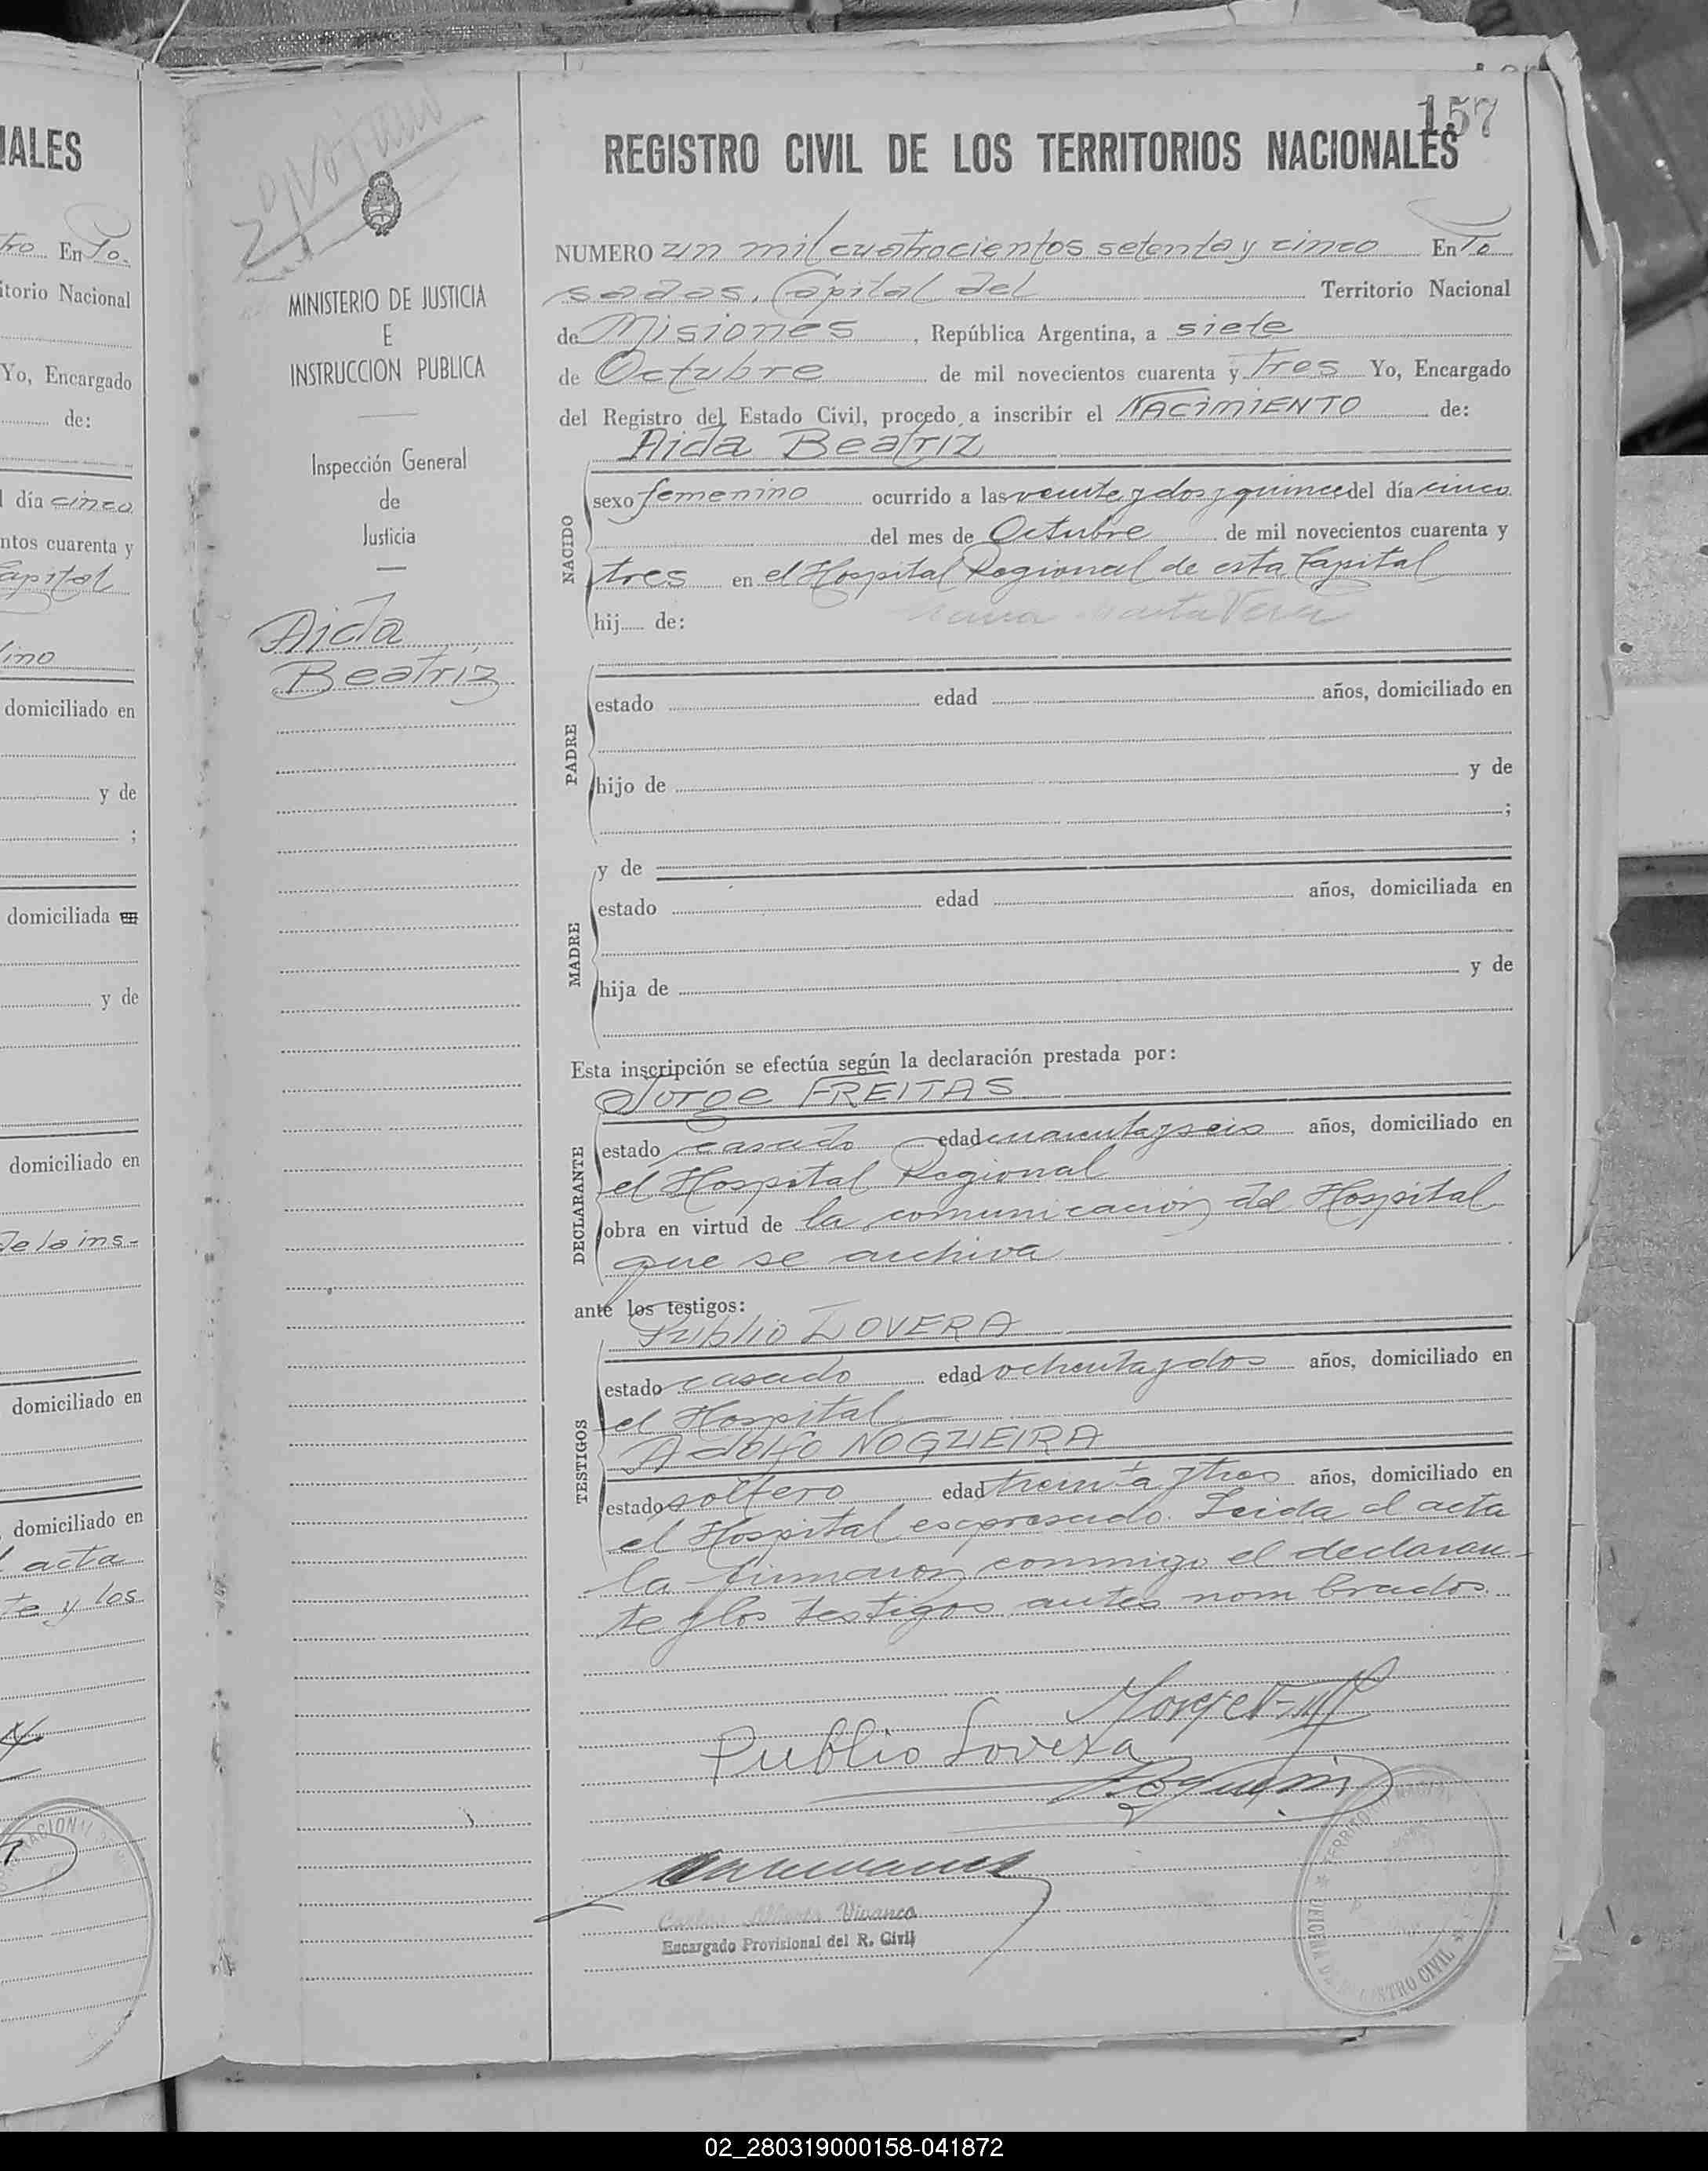 157
REGISTRO CIVIL DE LOS TERRITORIOS NACIONALES
NUMERO un mil cuatrocientos setenta y cinco En Po
sadas, Capital del Territorio Nacional
de Misiones, República Argentina, a siete
de Octubre de mil novecientos cuarenta y Tres Yo, Encargado
del Registro del Estado Civil, procedo a inscribir el NACIMIENTO de:
Aida Beatriz
NACIDO
sexo femenino ocurrido a las veinte y dos y quince del día cinco
del mes de Octubre de mil novecientos cuarenta y
tres en el Hospital Regional de esta Capital
hij de:
PADRE
estado edad años, domiciliado en
hijo de y de
;
MADRE
y de
estado edad años, domiciliada en
hija de y de
Esta inscripción se efectúa según la declaración prestada por:
Jorge FREITAS
DECLARANTE
estado casado edad cuarenta y seis años, domiciliado en
el Hospital Regional
obra en virtud de la comunicación del Hospital
que se archiva
ante los testigos:
Publio LOVERA
TESTIGOS
estado casado edad ochenta y dos años, domiciliado en
el Hospital
Adolfo NOGUEIRA
estado soltero edad treinta y tres años, domiciliado en
el Hospital expresado. Leida el acta
la firmaron conmigo el declaran-
te y los testigos antes nombrados.
Publio Lovera
Carlos Alberto Vivanco
Encargado Provisional del R. Civil
MINISTERIO DE JUSTICIA
E
INSTRUCCION PUBLICA
Inspección General
de
Justicia
Aida
Beatriz
NALES
tro En Po.
itorio Nacional
Yo, Encargado
de:
día cinco
ntos cuarenta y
Capital
ino
domiciliado en
y de
;
domiciliada en
y de
domiciliado en
de la ins-
domiciliado en
domiciliado en
acta
te y los
02_280319000158-041872